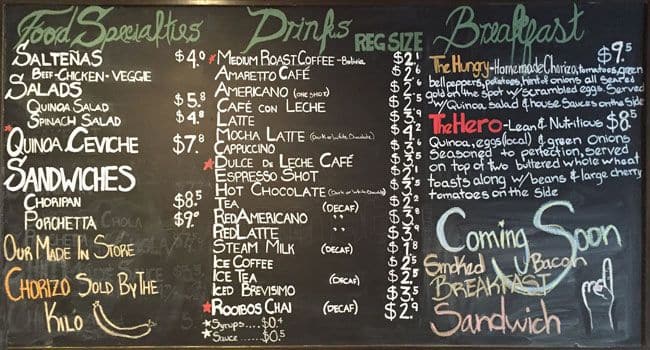 Food Specialties
SALTEÑAS $4.0
BEEF-CHICKEN-VEGGIE
SALADS
QUINOA SALAD $5.8
SPINACH SALAD $4.8
QUINOA CEVICHE $7.8
SANDWICHES
CHORIPAN $8.5
PORCHETTA $9.0
OUR MADE IN STORE
CHORIZO SOLD BY THE
KILO
Drinks REG SIZE
MEDIUM ROAST COFFEE -Bolivia $2.1
AMARETTO CAFÉ
AMERICANO (ONE SHOT)
CAFÉ CON LECHE
LATTE
MOCHA LATTE (Dark or White Chocolate)
CAPPUCCINO
DULCE DE LECHE CAFÉ
ESPRESSO SHOT
HOT CHOCOLATE (Dark or White Chocolate)
TEA (DECAF)
RED AMERICANO ''
RED LATTE ''
STEAM MILK (DECAF) $1.8
ICE COFFEE $2.5
ICE TEA (DECAF) $2.5
ICED BREVISIMO $3.5
ROOIBOS CHAI (DECAF) $2.9
Syrups....$0.4
Sauce ....$0.5
Breakfast
The Hungry-Homemade Chorizo, tomatoes, green $9.5
bell peppers, potatoes, mint & onions all seared
gold on the spot w/ scrambled eggs. Served
w/Quinoa salad & house Sauces on the side
The Hero-Lean & Nutritious $8.5
Quinoa, eggs (local) & green onions
Seasoned to perfection, served
on top of two buttered whole wheat
toasts along w/beans & large cherry
tomatoes on the side
Coming Soon
Smoked Bacon
BREAKFAST
Sandwich